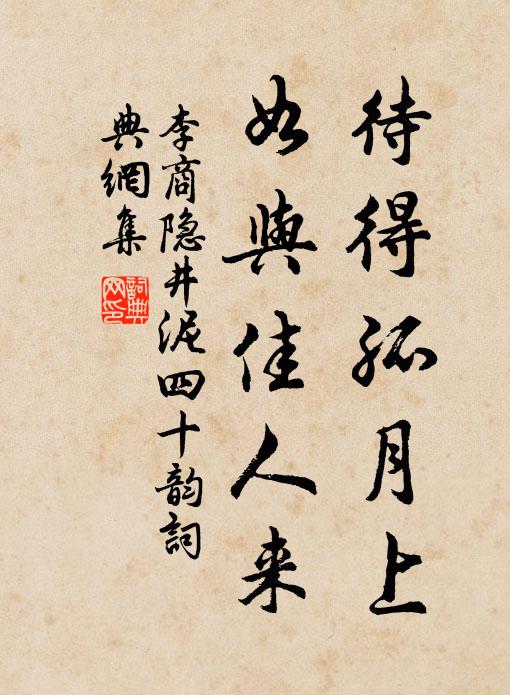 待得孤月上
如與佳人来
李商隐井泥四十韵詞
典網集
詞典
网印